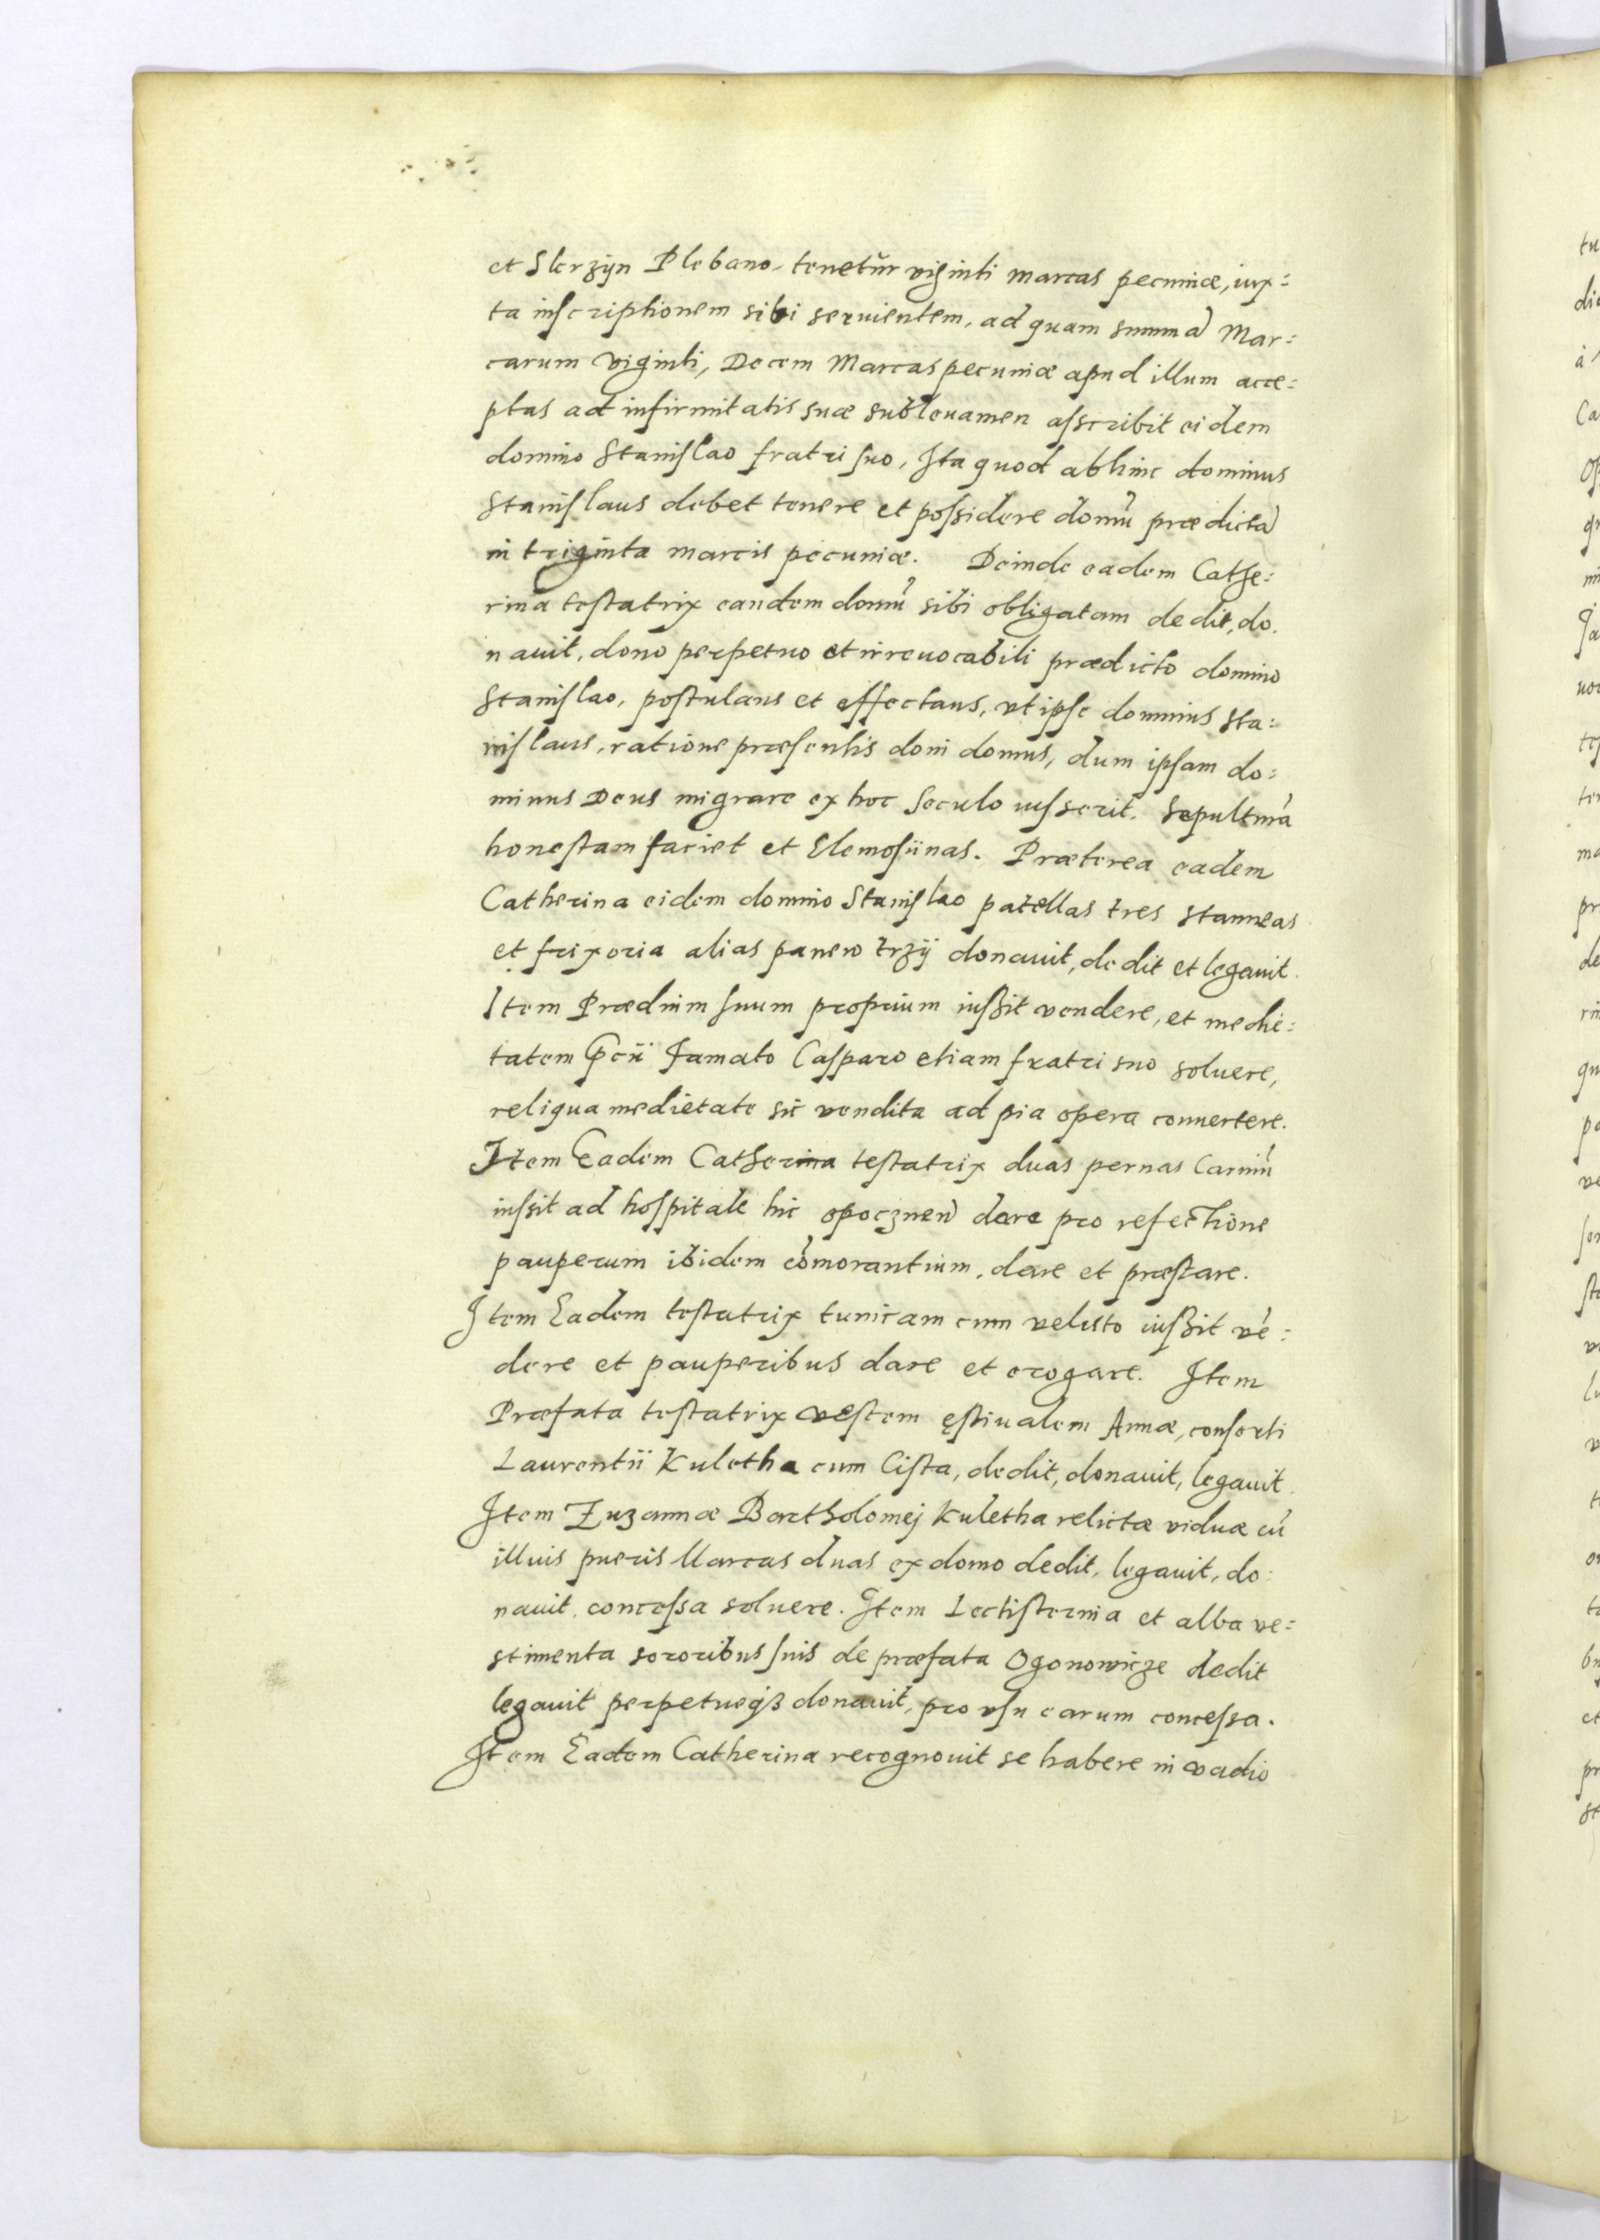 et Slerzÿn Plebano, tenetũr viginti marcas pecuniæ, iux:
ta inscriptionem sibi seruientem, ad quam summā Mar:
carum viginti, Decem Marcas pecuniæ apud illum acce:
ptas ad infirmitatis suæ subleuamen asscribit eidem
domino Stanislao fratri suo, Ita quod abhinc dominus
Stanislaus debet tenere et possidere domū prædictā
in triginta marcis pecuniæ. Deinde eadem Cathe:
rina testatrix eandem domū sibi obligatam dedit, do.
nauit, dono perpetuo et irreuocabili prædicto domino
Stanislao, postulans et effectans, vt ipse dominus Sta:
nislaus, ratione præsentis doni domus, dum ipsam do:
minus Deus migrare ex hoc seculo iusserit, Sepulturā
honestam faciet et Elemosÿnas. Præterea eadem
Catherina eidem domino Stanislao patellas tres stanneas
et frixoria alias panew trzÿ donauit, dedit et legauit.
Item Prædium suum proprium iussit vendere, et medie:
tatem famato Casparo etiam fratri suo soluere,
reliqua medietate sic vendita ad pia opera conuertere.
Item Eadem Catherina testatrix duas pernas Carniū
iussit ad hospitale hic opocznen̄ dare pro refectione
pauperum ibidem cōmorantium, dare et præstare.
Item Eadem testatrix tunicam cum velisto iussit vē:
dere et pauperibus dare et erogare. Item
Præfata testatrix vestem ęstiualem Annæ, consorti
Laurentii Kuletha cum Cista, dedit, donauit, legauit.
Item Zuzannæ Bartholomej Kuletha relictæ viduæ cū
illius pueris Marcas duas ex domo dedit, legauit, do:
nauit, concessa soluere. Item Lectisternia et alba ve:
stimenta sororibus suis de præfata Ogonowicze dedit
legauit perpetueqȝ donauit, pro vsu earum concessa.
Item Eadem Catherina recognouit se habere in vadio